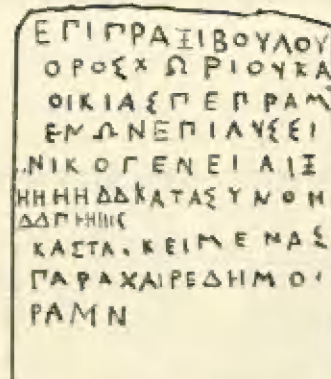 ΕΠΙΠΡΑΞΙΒΟΥΛΟΥ
ΟΡΟΣΧΩΡΙΟΥΚΑ
ΟΙΚΙΑΣΠΕΠΡΑΜ
ΕΝΩΝΕΠΙΛΥΣΕΙ
..ΝΙΚΟΓΕΝΕΙΑΙΞ
ΗΗΗΗΔΔΚΑΤΑΣΥΝΘΗ
ΚΑΣΤΑ.ΚΕΙΜΕΝΑΣ
ΠΑΡΑΧΑΙΡΕΔΗΜΟΙ
ΡΑΜΝ